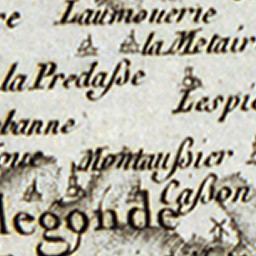 re Laumouerie
la Metair
la Predaſse
Lespi
banne
oue Montauſsier
Caſson
legonde